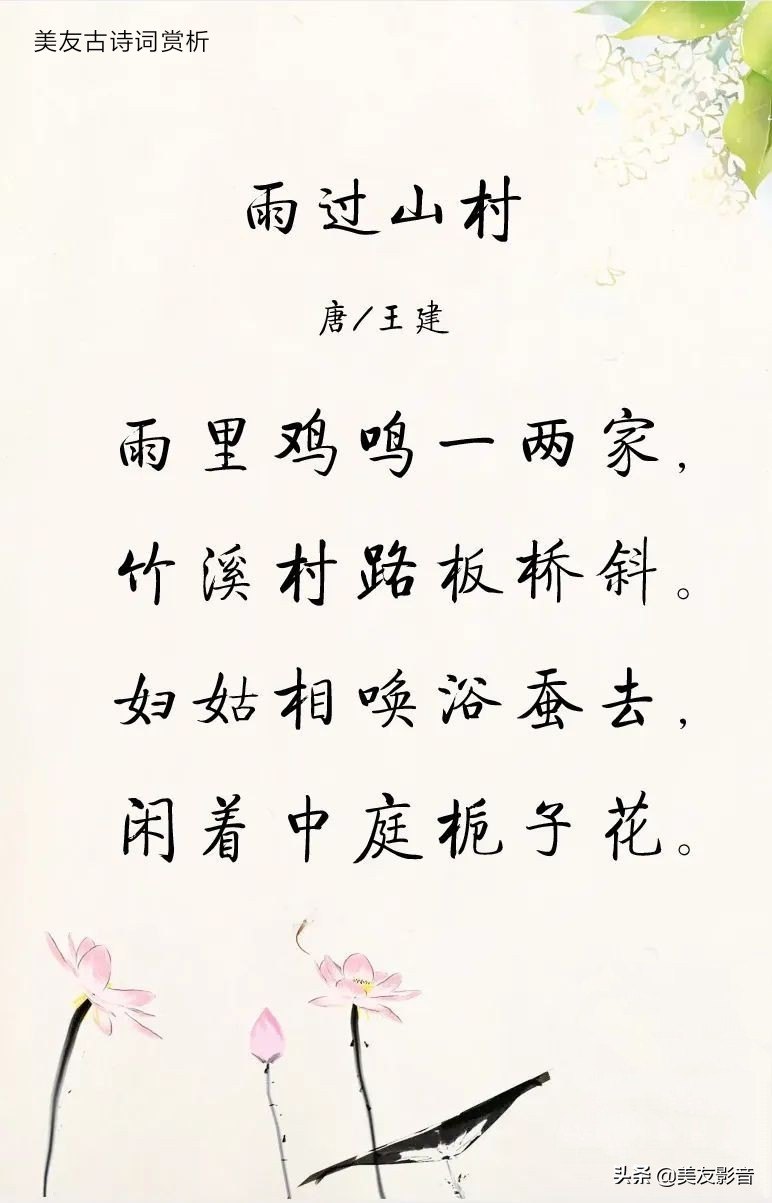 美友古诗词赏析
雨过山村
唐/王建
雨里鸡鸣一两家，
竹溪村路板桥斜。
妇姑相唤浴蚕去，
闲着中庭栀子花。
头条 @美友影音